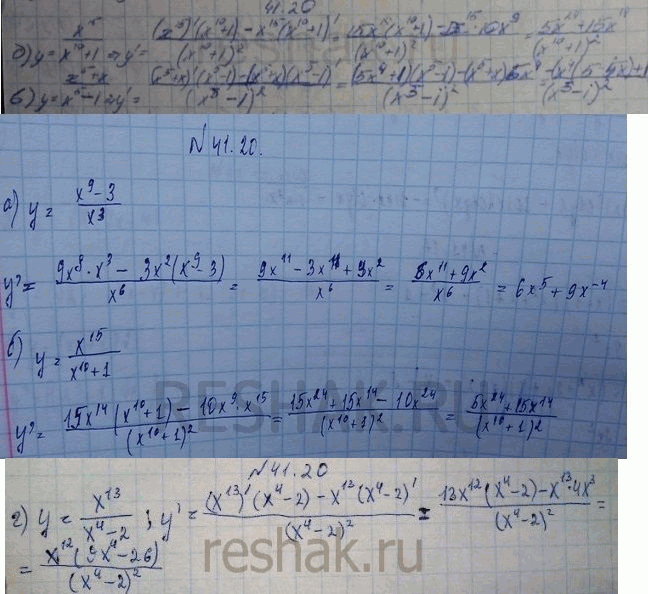 41.20
y = x^15/(x^10+1) ⇒ y' = ((x^15)'(x^10+1) - x^15(x^10+1)')/(x^10+1)^2 = (15x^14(x^10+1) - x^15·10x^9)/(x^10+1)^2 = (5x^24+15x^14)/(x^10+1)^2
в) y = (x^5+x)/(x^5-1) ⇒ y' = ((x^5+x)'(x^5-1) - (x^5+x)(x^5-1)')/(x^5-1)^2 = ((5x^4+1)(x^5-1) - (x^5+x)5x^4)/(x^5-1)^2
№41.20.
а) y = (x^9-3)/x^3
y' = (9x^8·x^3 - 3x^2(x^9-3))/x^6 = (9x^11 - 3x^11 + 9x^2)/x^6 = (6x^11+9x^2)/x^6 = 6x^5+9x^-4
б) y = x^15/(x^10+1)
RESHAK.RU
y' = (15x^14(x^10+1) - 10x^9·x^15)/(x^10+1)^2 = (15x^24+15x^14-10x^24)/(x^10+1)^2 = (5x^24+15x^14)/(x^10+1)^2
№41.20
г) y = x^13/(x^4-2); y' = ((x^13)'(x^4-2) - x^13(x^4-2)')/(x^4-2)^2 = (13x^12(x^4-2) - x^13·4x^3)/(x^4-2)^2 =
= x^12(9x^4-26)/(x^4-2)^2
reshak.ru